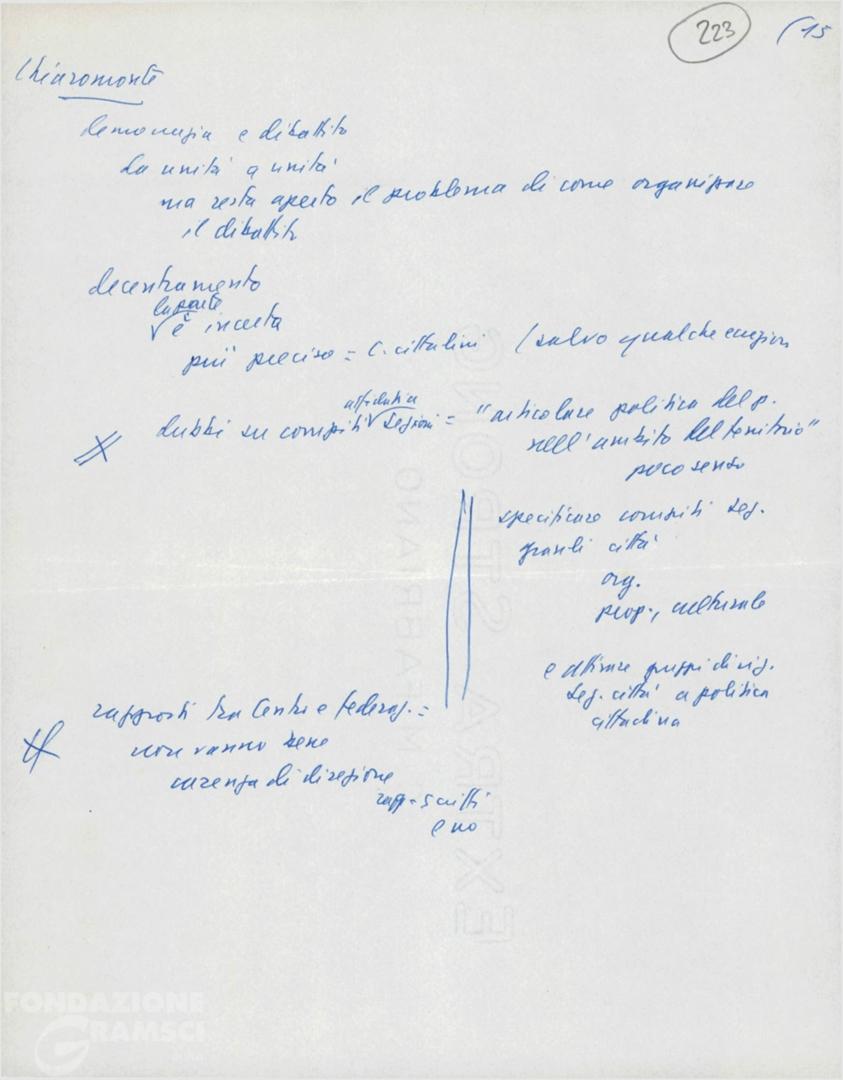 223 (15
Chiaromonte
democrazia e dibattito
da unità a unità
ma resta aperto il problema di come organizzare
il dibattito
decentramento
la parte
è incerta
più preciso = C. cittadini (salvo qualche
dubbi su compiti affidati a Sezioni = "articolare politica del p.
nell'ambito del territorio"
poco senso
specificare compiti sez.
grandi città
org.
prop., culturale
e attivare gruppi dirig.
sez. città a politica
cittadina
rapporti tra Centro e federaz. =
non vanno bene
carenza di direzione
rapp. scritti
e no
EXTRA STRONG
FABRIANO
FONDAZIONE
GRAMSCI